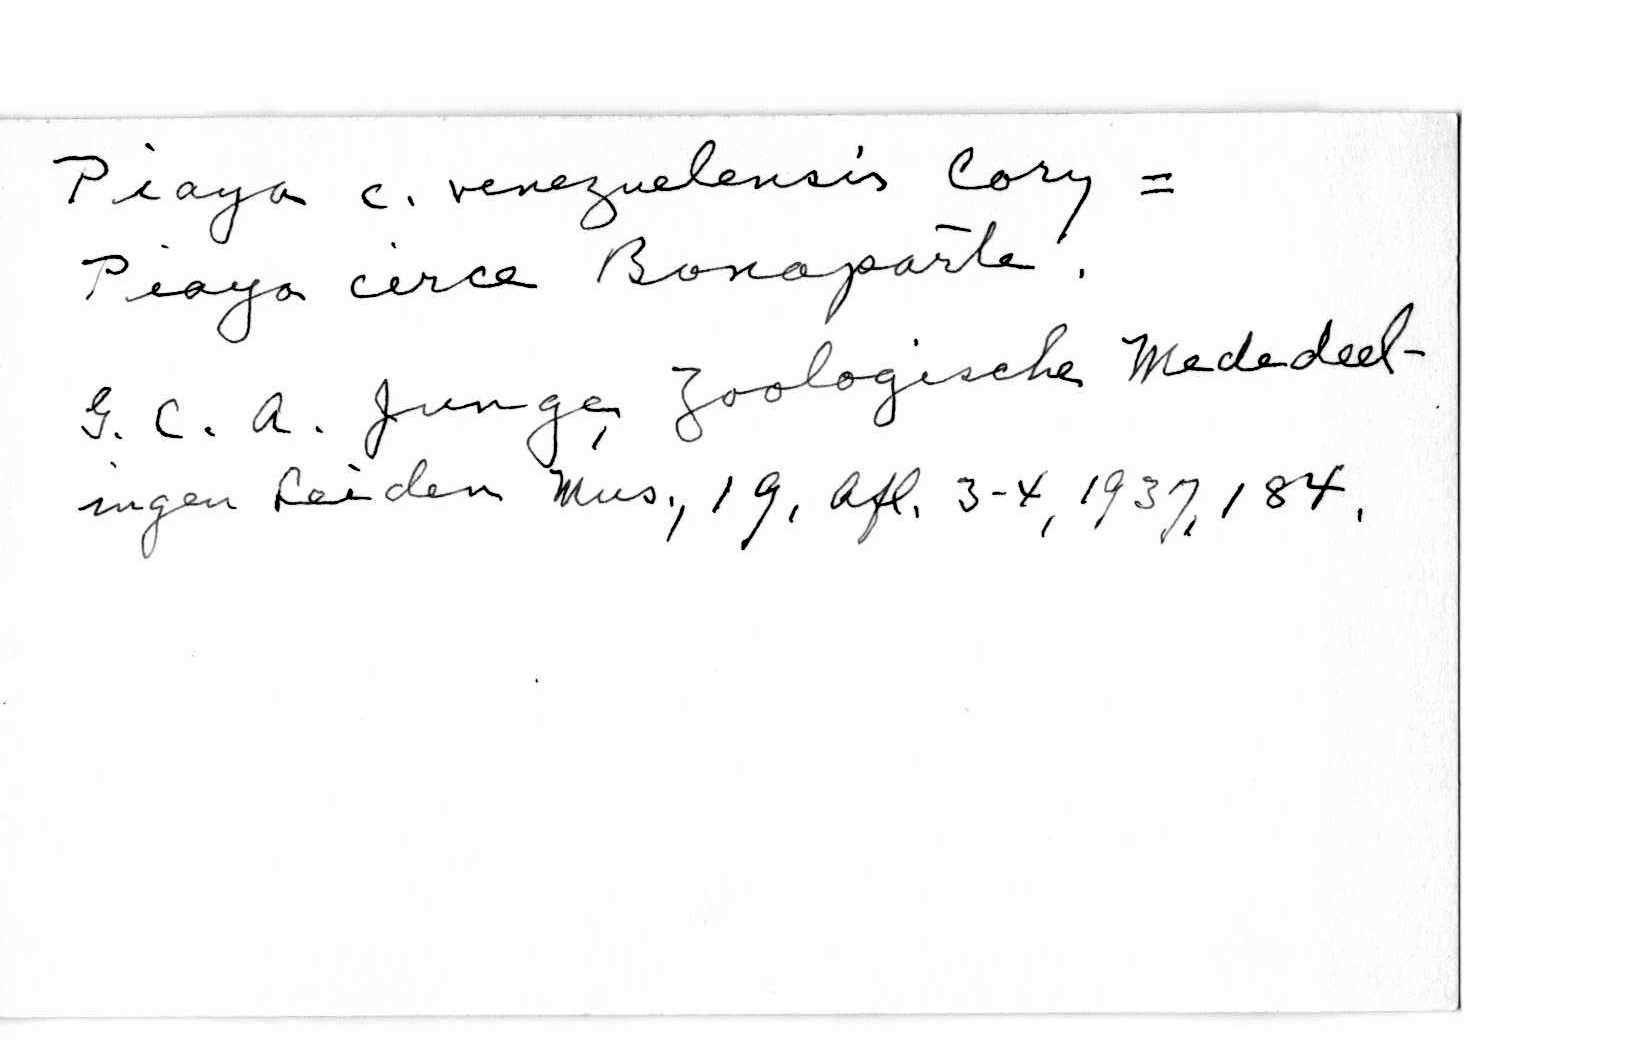 Piaya c. venezuelensis Cory =
Piaya circe Bonaparte.
G. C. A. Junge, Zoologische Mededeel-
ingen Leiden Mus., 19, Afl. 3-4, 1937, 184.